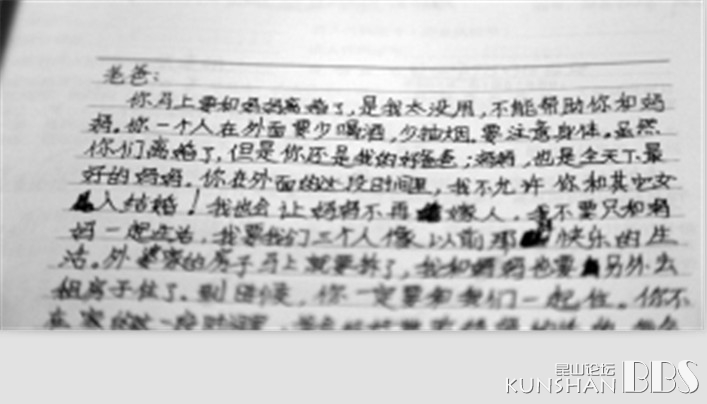 老爸:
你马上要和妈妈离婚了,是我太没用,不能帮助你和妈
妈。你一个人在外面要少喝酒,少抽烟。要注意身体。虽然
你们离婚了,但是你还是我的好爸爸;妈妈,也是全天下最
好的妈妈。你在外面的这段时间里,我不允许你和其它女
人结婚!我也会让妈妈不再嫁人。我不要只和妈
妈一起生活,我要我们三个人像以前那快乐的生
活。外婆家的房子马上就要拆了,我和妈妈也要另外去
租房子住了。到时候,你一定要和我们一起住。你不
在家的这一段时间里,
昆山论坛
KUNSHAN BBS